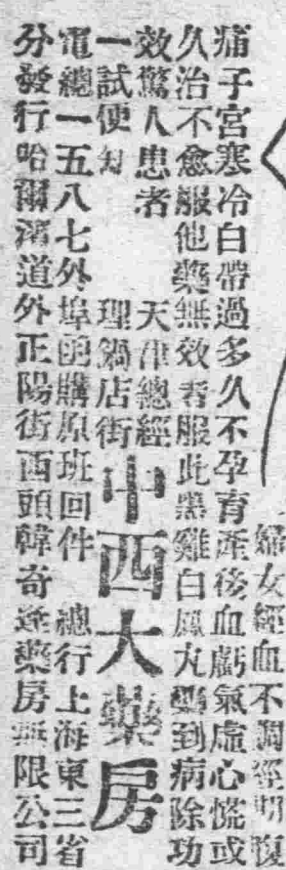 婦女經血不調經期腹
痛子宮寒冷白帶過多久不孕育產後血虧氣虛心慌或
久治不愈服他藥無效者服此黑雞白鳳丸藥到病除功
效驚人患者
一試便知
天津總經
理鍋店街
中西大藥房
電總一五八七外埠函購原班回件 總行上海東三省
分發行哈爾濱道外正陽街西頭韓奇逢藥房無限公司